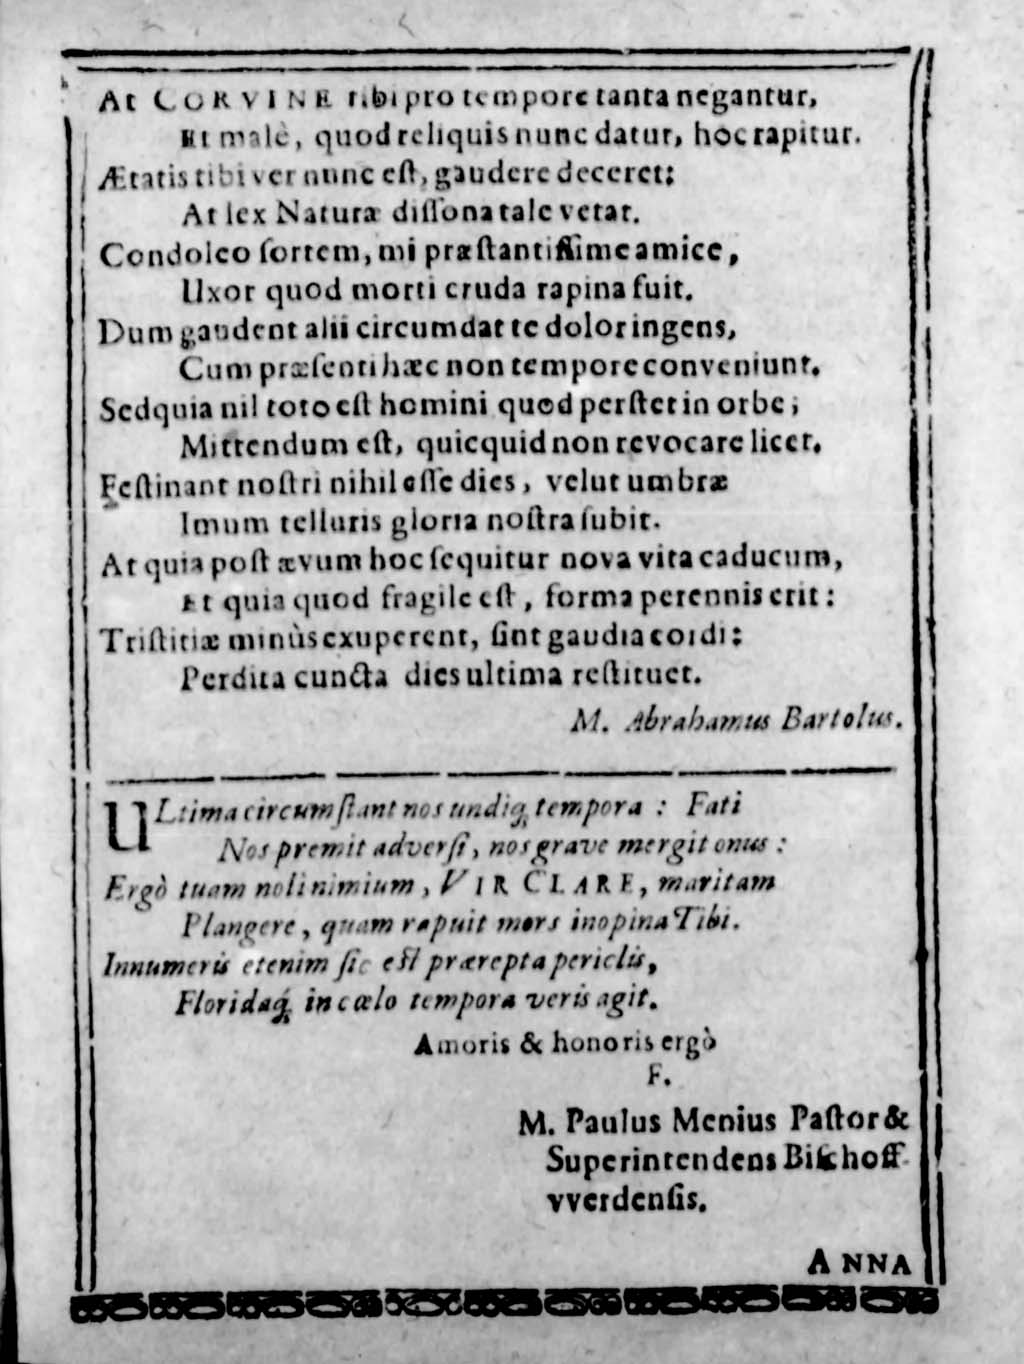 At CORVINE tibi pro tempore tanta negantur,
Et malè, quod reliquis nunc datur, hoc rapitur.
Ætatis tibi ver nunc eſt, gaudere deceret;
At lex Naturæ diſſona tale vetat.
Condoleo ſortem, mi præſtantiſſime amice,
Uxor quod morti cruda rapina fuit.
Dum gaudent alii circumdat te dolor ingens,
Cum præſenti hæc non tempore conveniunt.
Sed quia nil toto eſt homini quod perſtet in orbe;
Mittendum eſt, quicquid non revocare licet.
Feſtinant noſtri nihil eſſe dies, velut umbræ
Imum telluris gloria noſtra ſubit.
At quia poſt ævum hoc ſequitur nova vita caducum,
Et quia quod fragile eſt, forma perennis erit:
Triſtitiæ minùs exuperent, ſint gaudia cordi:
Perdita cuncta dies ultima reſtituet.
M. Abrahamus Bartolus.
ULtima circumſtant nos undiq; tempora: Fati
Nos premit adverſi, nos grave mergit onus:
Ergò tuam noli nimium, VIR CLARE, maritam
Plangere, quam rapuit mors inopina Tibi.
Innumeris etenim ſic eſt prærepta periclis,
Floridaq́; in cœlo tempora veris agit.
Amoris & honoris ergò
F.
M. Paulus Menius Paſtor &
Superintendens Biſchoff-
vverdenſis.
ANNA